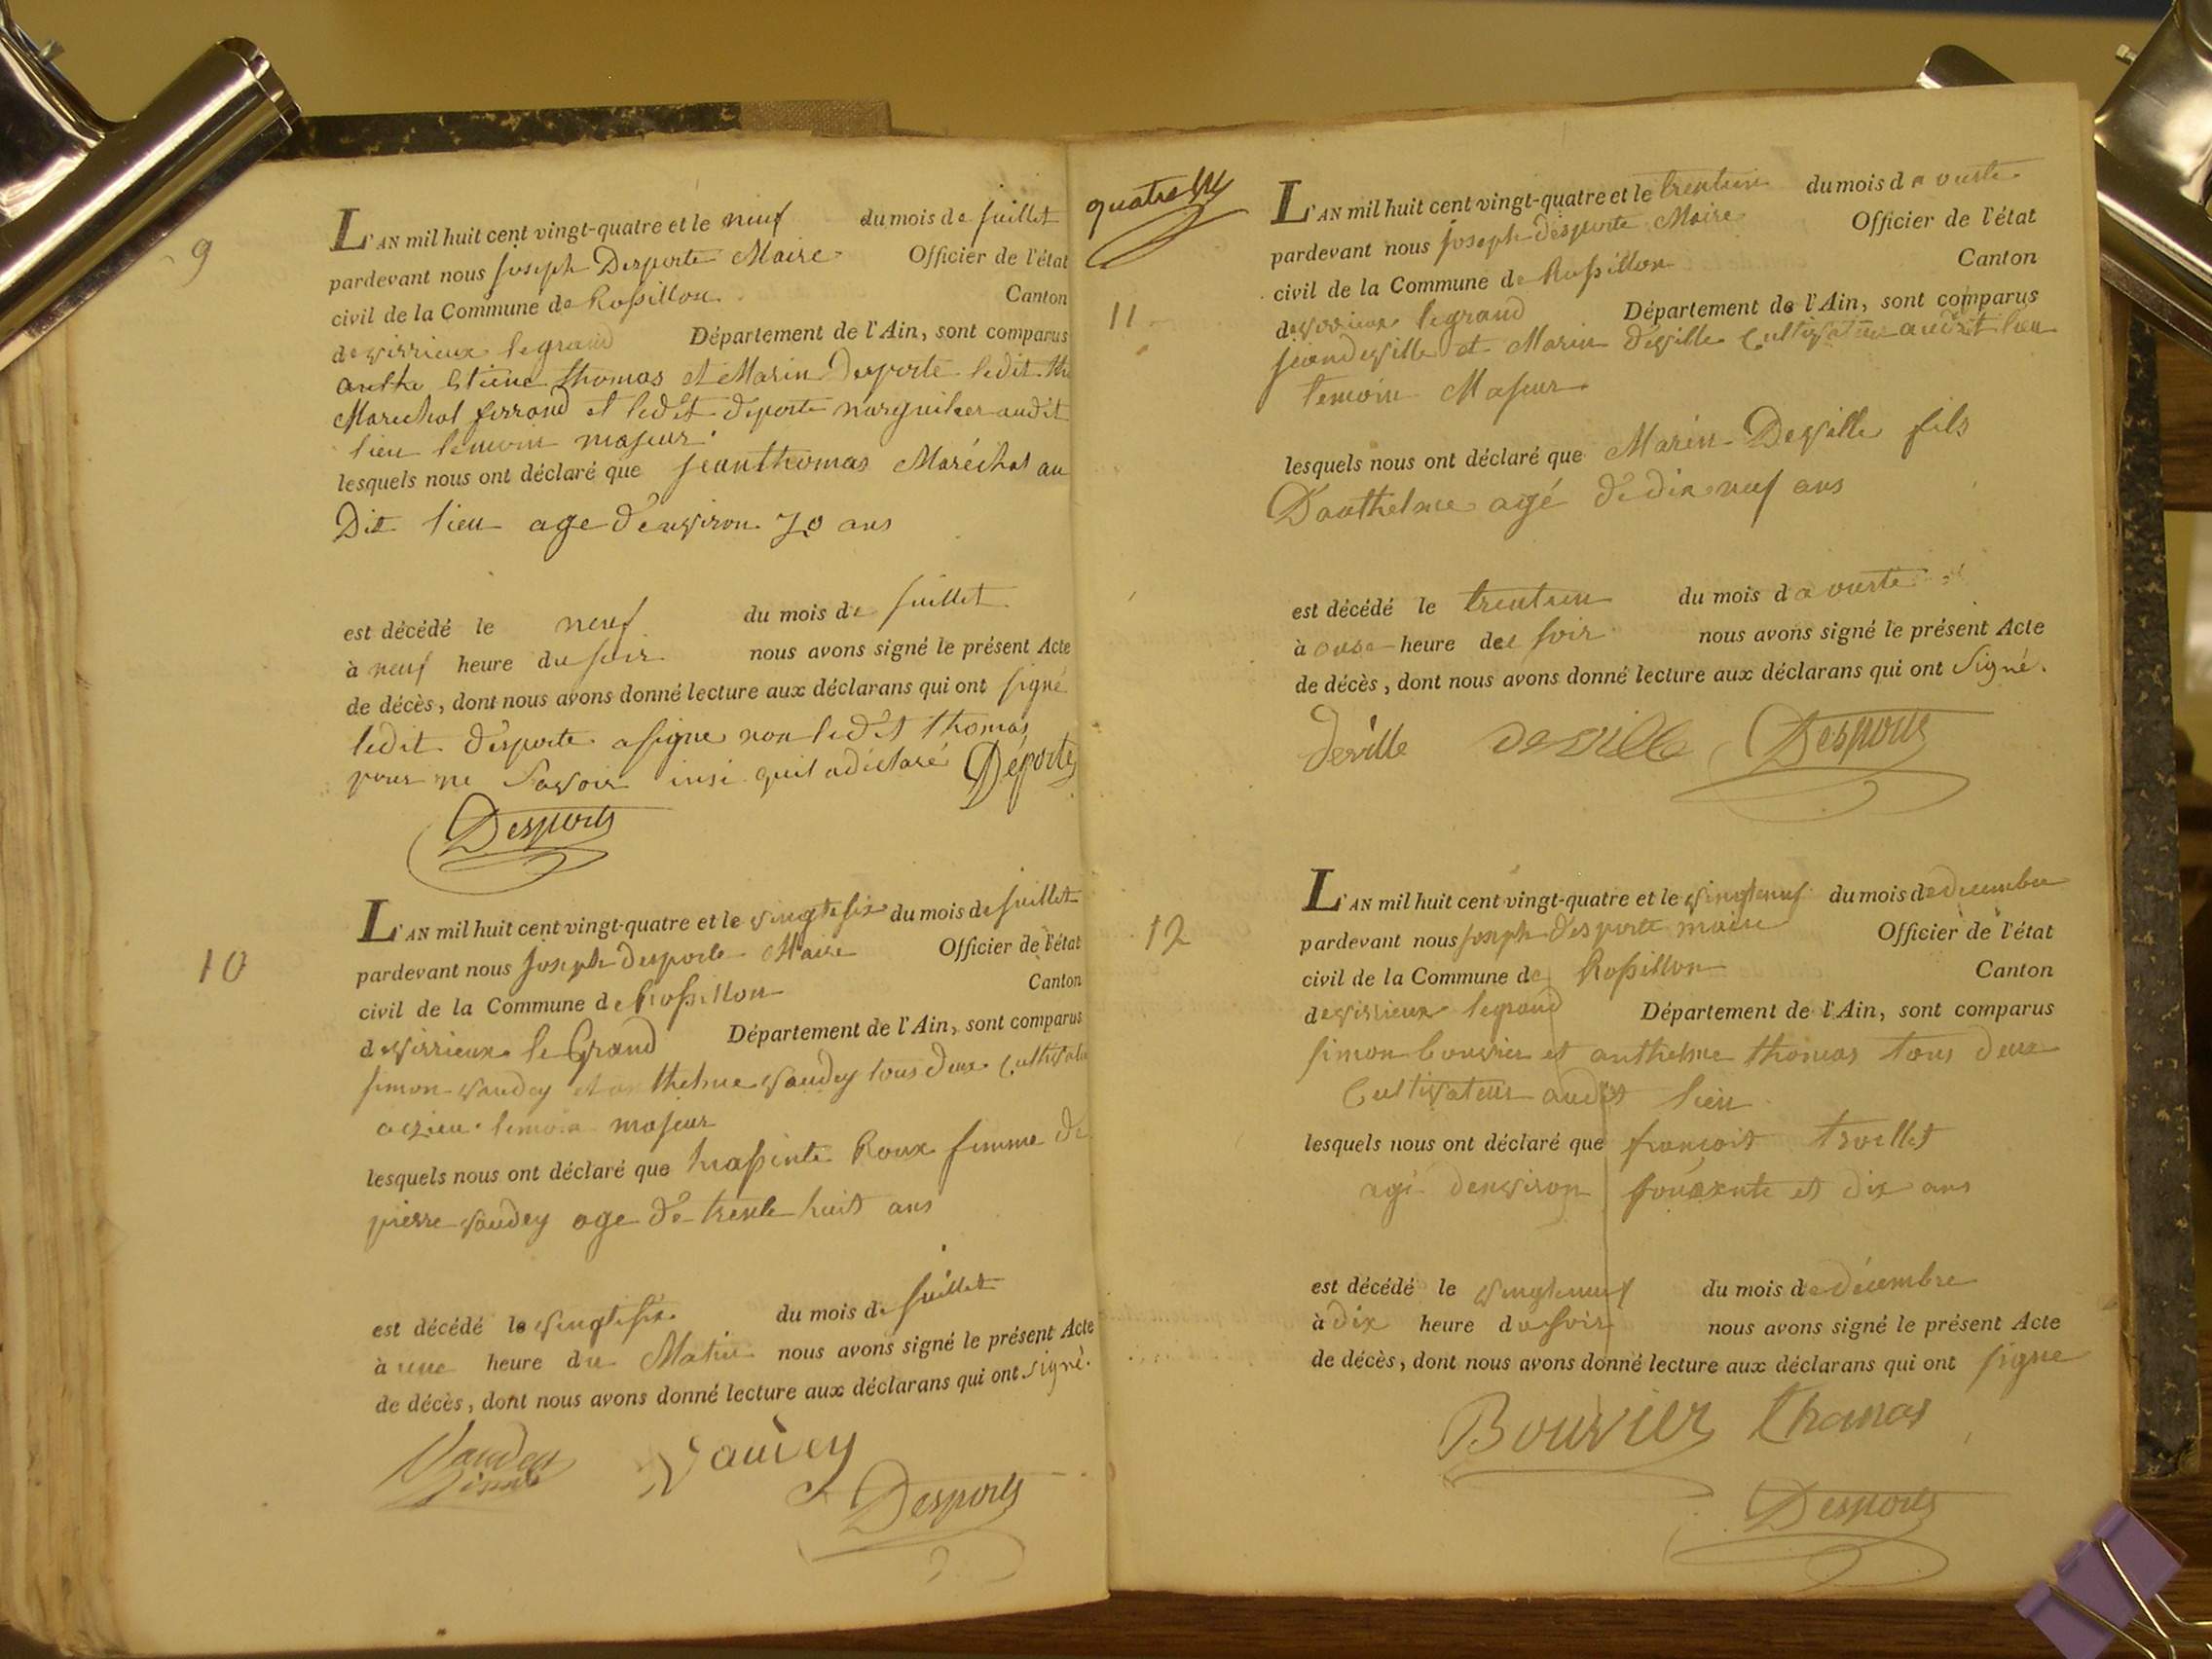 9
L'AN mil huit cent vingt-quatre et le neuf du mois de juillet
pardevant nous joseph Desporte Maire Officier de l'état
civil de la Commune de Rossillon Canton
de virrieux le grand Département de l'Ain, sont comparus
thomas et Marin Desporte ledit th
Marechal ferrand et ledit deporte marguiler audit
lieu temoin majeur
lesquels nous ont déclaré que jean thomas Maréchal au
Dit lieu age d'environ 70 ans
est décédé le neuf du mois de juillet
à neuf heure du soir nous avons signé le présent Acte
de décès, dont nous avons donné lecture aux déclarans qui ont signé
ledit desporte a signe non ledit thomas
pour ne savoir insi quil a diclaré Déporte
Desporte
10
L'AN mil huit cent vingt-quatre et le vingt six du mois de juillet
pardevant nous joseph desporte Maire Officier de l'état
civil de la Commune de Rossillon Canton
de virrieux le Grand Département de l'Ain, sont comparus
simon vaudey et anthelme vaudey tous deux Cultivate
temoin majeur
lesquels nous ont déclaré que hiassinte Roux femme de
pierre vaudey age de trente huit ans
est décédé le vingt six du mois de juillet
à une heure du Matin nous avons signé le présent Acte
de décès, dont nous avons donné lecture aux déclarans qui ont signé.
Vaudey Vaudey
Desporte
quatre
11
L'AN mil huit cent vingt-quatre et le trentun du mois d aouste
pardevant nous joseph desporte Maire Officier de l'état
civil de la Commune de Rossillon Canton
de virrieux legrand Département de l'Ain, sont comparus
jean deville et Marin deville Cultivateur audit lieu
temoin Majeur
lesquels nous ont déclaré que Marin Deville fils
D'anthelme agé de dix neuf ans
est décédé le trentun du mois d aouste
à onse heure de soir nous avons signé le présent Acte
de décès, dont nous avons donné lecture aux déclarans qui ont signé.
deville deville Desporte
12
L'AN mil huit cent vingt-quatre et le vingtneuf du mois de decembre
pardevant nous joseph desporte maire Officier de l'état
civil de la Commune de Rossillon Canton
de virrieux legrand Département de l'Ain, sont comparus
simon bouvier et anthelme thomas tous deux
Cultivateur audit lieu
lesquels nous ont déclaré que françois trollet
agé denviron soixente et dix ans
est décédé le vingtneuf du mois de décembre
à dix heure du soir nous avons signé le présent Acte
de décès, dont nous avons donné lecture aux déclarans qui ont signe
Bouvier thomas
Desporte